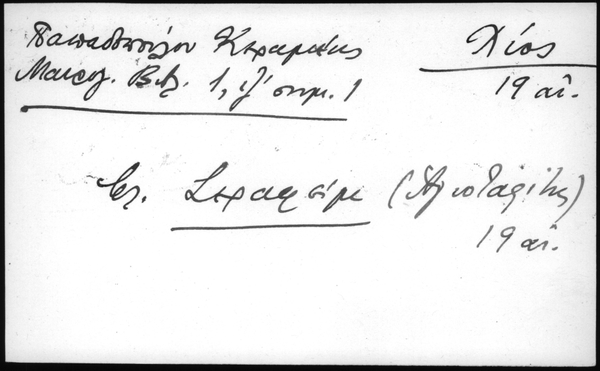 Παπαδοπούλου Κεραμέως
Χίος
Μαυρογ. Βιβ. 1, ιζ' σημ. 1
19 αἰ.
βλ. Σεραφείμ (Ἁγιοταφίτης)
19 αἰ.